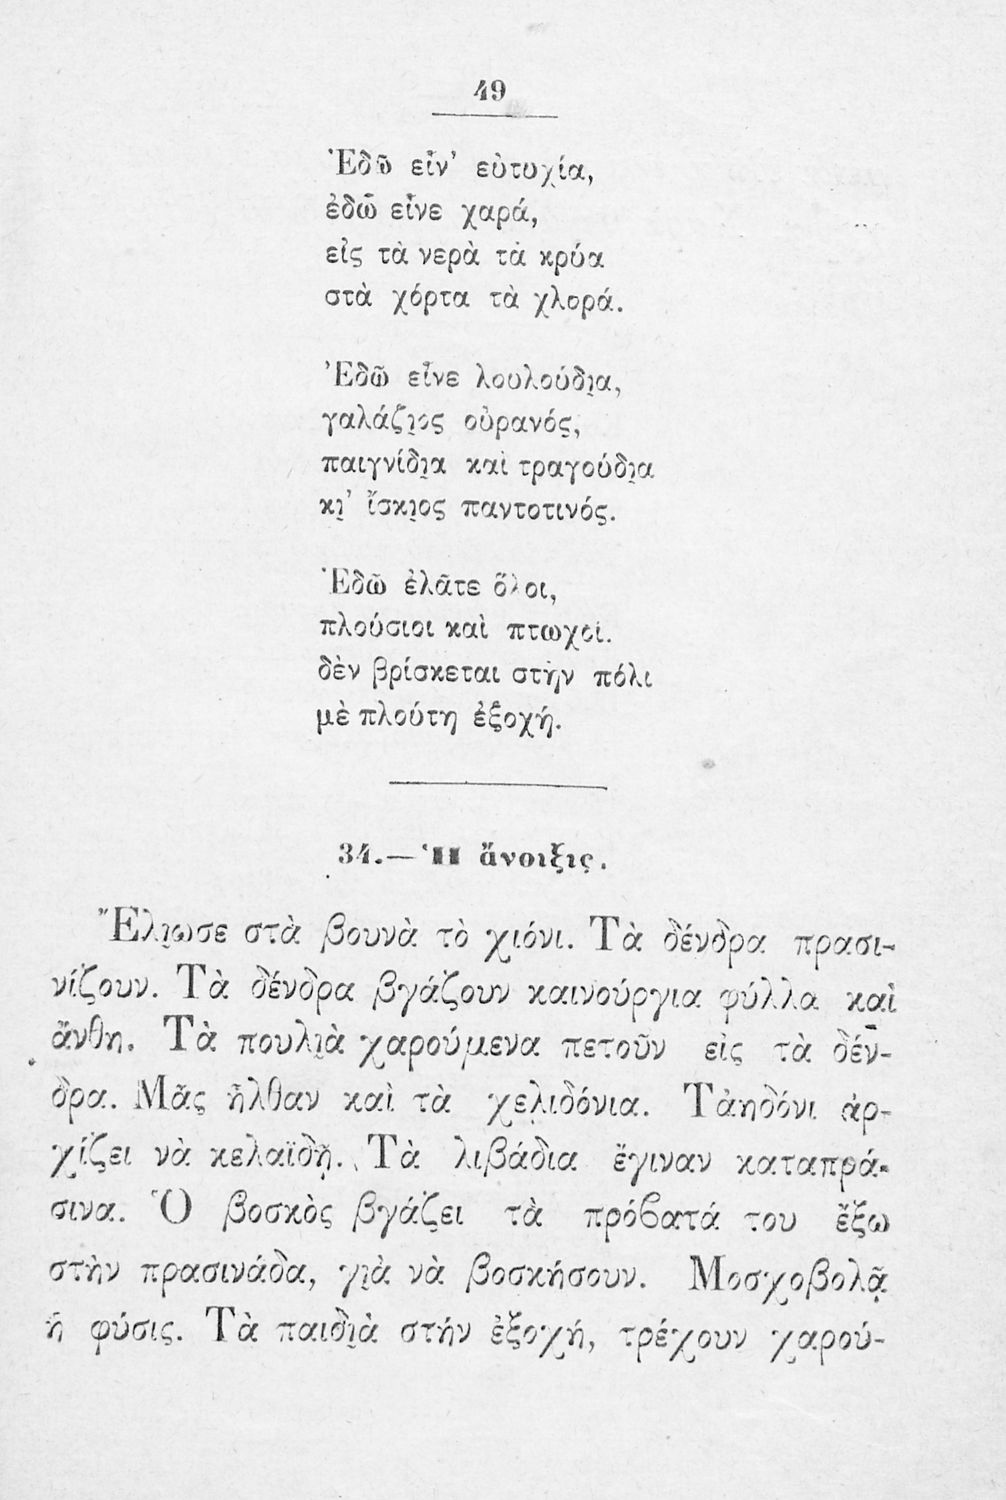 49
Ἐδῶ εἶν' εὐτυχία,
ἐδῶ εἶνε χαρά,
εἰς τὰ νερὰ τὰ κρύα
στὰ χόρτα τὰ χλορά.
Ἐδῶ εἶνε λουλούδι̯α,
γαλάζι̯ος οὐρανός,
παιγνίδι̯α καὶ τραγούδι̯α
κι̯' ἴσκι̯ος παντοτινός.
Ἐδῶ ἐλᾶτε ὅλοι,
πλούσιοι καὶ πτωχοί.
δὲν βρίσκεται στὴν πόλι
μὲ πλούτη ἐξοχή.
34.— Ἡ ἄνοιξις.
Ἔλι̯ωσε στὰ βουνὰ τὸ χιόνι. Τὰ δένδρα πρασι-
νίζουν. Τὰ δένδρα βγάζουν καινούργια φύλλα καὶ
ἄνθη. Τὰ πουλι̯ὰ χαρούμενα πετοῦν εἰς τὰ δέν-
δρα. Μᾶς ἦλθαν καὶ τὰ χελιδόνια. Τἀηδόνι ἀρ-
χίζει νὰ κελαϊδῇ. Τὰ λιβάδια ἔγιναν καταπρά-
σινα. Ὁ βοσκὸς βγάζει τὰ πρόβατά του ἔξω
στὴν πρασινάδα, γι̯ὰ νὰ βοσκήσουν. Μοσχοβολᾷ
ἡ φύσις. Τὰ παιδι̯ὰ στήν ἐξοχή, τρέχουν χαρού-